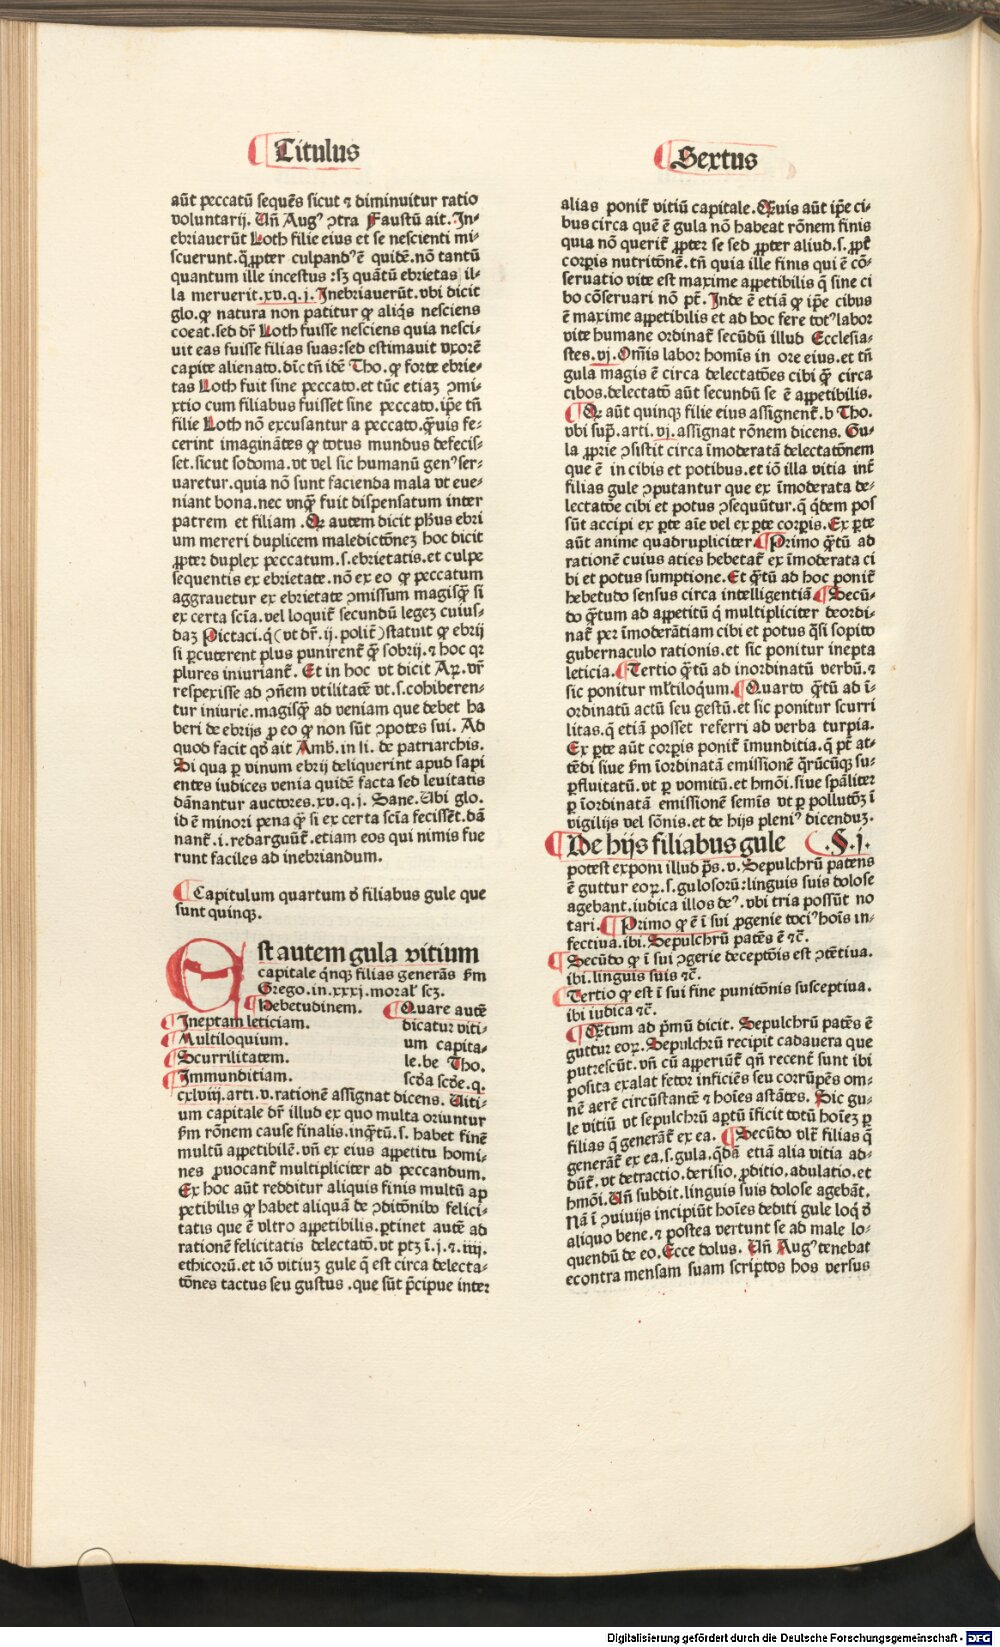 Titulus
aūt peccatū sequēs sicut ⁊ diminuitur ratio
voluntarij. Uñ Augꝰ ↄtra Faustū ait. In-
ebriauerūt Loth filie eius et se nescienti mi-
scuerunt. q̄ꝓpter culpandꝰ ē quidē. nō tantū
quantum ille incestus: sꝫ quātū ebrietas il-
la meruerit. xv. q. j. Inebriauerūt. vbi dicit
glo. ꝙ natura non patitur ꝙ aliq̇s nesciens
coeat. sed dr̄ Loth fuisse nesciens quia nesci-
uit eas fuisse filias suas: sed estimauit vxorē
capite alienato. dīc tñ idē Tho. ꝙ forte ebrie-
tas Loth fuit sine peccato. et tūc etiaꝫ ↄmi-
xtio cum filiabus fuisset sine peccato. ip̄e tñ
filie Loth nō excusantur a peccato. q̄uis fe-
cerint imaginātes ꝙ totus mundus defecis-
set. sicut sodoma. vt vel sic humanū genꝰ ser-
uaretur. quia nō sunt facienda mala vt eue-
niant bona. nec vnq̄ fuit dispensatum inter
patrem et filiam. Qꝛ autem dicit phūs ebri
um mereri duplicem maledictōneꝫ hoc dicit
ꝓpter duplex peccatum. s. ebrietatis. et culpe
sequentis ex ebrietate. nō ex eo ꝙ peccatum
aggrauetur ex ebrietate ↄmissum magisq̄ si
ex certa scīa. vel loquit̄ secundū legeꝫ cuius-
daꝫ Pictaci. q̄ (vt dr̄. ij. polit̄) statuit ꝙ ebrij
si ꝑcuterent plus punirent̄ q̄ sobrij. ⁊ hoc qꝛ
plures iniuriant̄. Et in hoc vt dicit Aꝝ. vr̄
respexisse ad ↄñem vtilitatē vt. s. cohiberen-
tur iniurie. magisq̄ ad veniam que debet ha
beri de ebrijs ꝓ eo ꝙ non sūt ↄpotes sui. Ad
quod facit qḋ ait Amb̄. in li. de patriarchis.
Si qua ꝑ vinum ebrij deliquerint apud sapi
entes iudices venia quidē facta sed leuitatis
dānantur auctores. xv. q. j. Sane. Ubi glo.
id ē minori pena q̄ si ex certa scīa fecissēt. dā
nant̄. i. redarguūt̄. etiam eos qui nimis fue
runt faciles ad inebriandum.
¶ Capitulum quartum ḋ filiabus gule que
sunt quinqꝫ.
Est autem gula vitium
capitale q̇nqꝫ filias generās ẜm
Grego. in. xxxj. moral̄ scꝫ.
¶ Hebetudinem.
¶ Ineptam leticiam.
¶ Multiloquium.
¶ Scurrilitatem.
¶ Immunditiam.
¶ Quare autē
dicatur viti-
um capita-
le. be Tho.
scḋa scḋe. q.
cxlviij. arti. v. rationē assignat dicens. Uiti-
um capitale dr̄ illud ex quo multa oriuntur
ẜm rōnem cause finalis. inq̄tū. s. habet finē
multū appetibilē. vñ ex eius appetitu homi-
nes ꝓuocant̄ multipliciter ad peccandum.
Ex hoc aūt redditur aliquis finis multū ap
petibilis ꝙ habet aliquā de ↄditōnibꝰ felici-
tatis que ē vltro appetibilis. ꝑtinet autē ad
rationē felicitatis delectatō. vt ptꝫ ī. j. ⁊. iiij.
ethicorū. et iō vitiuꝫ gule q̄ est circa delecta-
tōnes tactus seu gustus. que sūt p̄cipue inter
¶ Sextus
alias ponit̄ vitiū capitale. Quis aūt ip̄e ci-
bus circa quē ē gula nō habeat rōnem finis
quia nō querit̄ ꝓpter se sed ꝓpter aliud. s. ꝓpt̄
corꝑis nutritōnē. tñ quia ille finis qui ē cō-
seruatio vite est maxime appetibilis q̄ sine ci
bo cōseruari nō pt̄. Inde ē etiā ꝙ ip̄e cibus
ē maxime appetibilis et ad hoc fere totꝰ labor
vite humane ordinat̄ secūdū illud Ecclesia-
stes. vj. Om̄is labor homīs in ore eius. et tñ
gula magis ē circa delectatōes cibi q̄ circa
cibos. delectatō aūt secundū se ē appetibilis.
¶ Qꝛ aūt quinqꝫ filie eius assignent̄. b Tho.
vbi sup̄. arti. vj. assignat rōnem dicens. Gu-
la ꝓprie ↄsistit circa īmoderatā delectatōnem
que ē in cibis et potibus. et iō illa vitia int̄
filias gule ↄputantur que ex īmoderata de-
lectatōe cibi et potus ↄsequūtur. q̄ q̇dem pos
sūt accipi ex ꝑte aīe vel ex ꝑte corꝑis. Ex ꝑte
aūt anime quadrupliciter ¶ Primo q̄tū ad
rationē cuius aties hebetat̄ ex īmoderata ci
bi et potus sumptione. Et q̄tū ad hoc ponit̄
hebetudo sensus circa intelligentiā ¶ Secū-
do q̄tum ad appetitū q̇ multipliciter deordi-
nat̄ per īmoderātiam cibi et potus q̄si sopito
gubernaculo rationis. et sic ponitur inepta
leticia. ¶ Tertio q̄tū ad inordinatū verbū. ⁊
sic ponitur ml̄tiloq̇um. ¶ Quarto q̄tū ad ī-
ordinatū actū seu gestū. et sic ponitur scurri
litas. q̄ etiā posset referri ad verba turpia.
Ex ꝑte aūt corꝑis ponit̄ īmunditia. q̄ pt̄ at-
tēdi siue ẜm īordinatā emissionē q̄rūcūqꝫ su-
ꝑfluitatū. vt ꝑ vomitū. et hmōi. siue spāliter
ꝑ īordinatā emissionē semīs vt ꝑ pollutōꝫ ī
vigilijs vel sōnis. et de hijs pleniꝰ dicenduꝫ.
¶ De hijs filiabus gule ¶ .§. j.
potest exponi illud p̄s. v. Sepulchrū patens
ē guttur eoꝝ. s. gulosorū: linguis suis dolose
agebant. iudica illos deꝰ. vbi tria possūt no
tari. ¶ Primo ꝙ ē ī sui ꝓgenie tociꝰ hoīs in-
fectiua. ibi. Sepulchrū patēs ē ⁊c̄.
¶ Secūdo ꝙ ī sui ↄgerie deceptōis est ↄtētiua.
ibi. linguis suis ⁊c̄.
¶ Tertio ꝙ est ī sui fine punitōnis susceptiua.
ibi iudica ⁊c̄.
¶ Q̄tum ad p̄mū dicit. Sepulchrū patēs ē
guttur eoꝝ. Sepulchrū recipit cadauera que
putrescūt. vñ cū apperiūt̄ qñ recent̄ sunt ibi
posita exalat fetor inficiēs seu corrūpēs om-
nē aerē circūstantē ⁊ hoīes astātes. Sic gu-
le vitiū vt sepulchrū aꝑtū īficit totū hoīeꝫ ꝑ
filias q̄ generāt̄ ex ea. ¶ Secūdo vlt̄ filias q̄
generāt̄ ex ea. s. gula. q̄dā etiā alia vitia ad-
dūt̄. vt detractio. derisio, ꝓditio, adulatio. et
hmōi. Uñ subdit. linguis suis dolose agebāt.
Nā ī ↄuiuijs incipiūt hoīes dediti gule loq̇ ḋ
aliquo bene. ⁊ postea vertunt se ad male lo-
quendū de eo. Ecce dolus. Uñ Augꝰ tenebat
econtra mensam suam scriptos hos versus
Digitalisierung gefördert durch die Deutsche Forschungsgemeinschaft - DFG